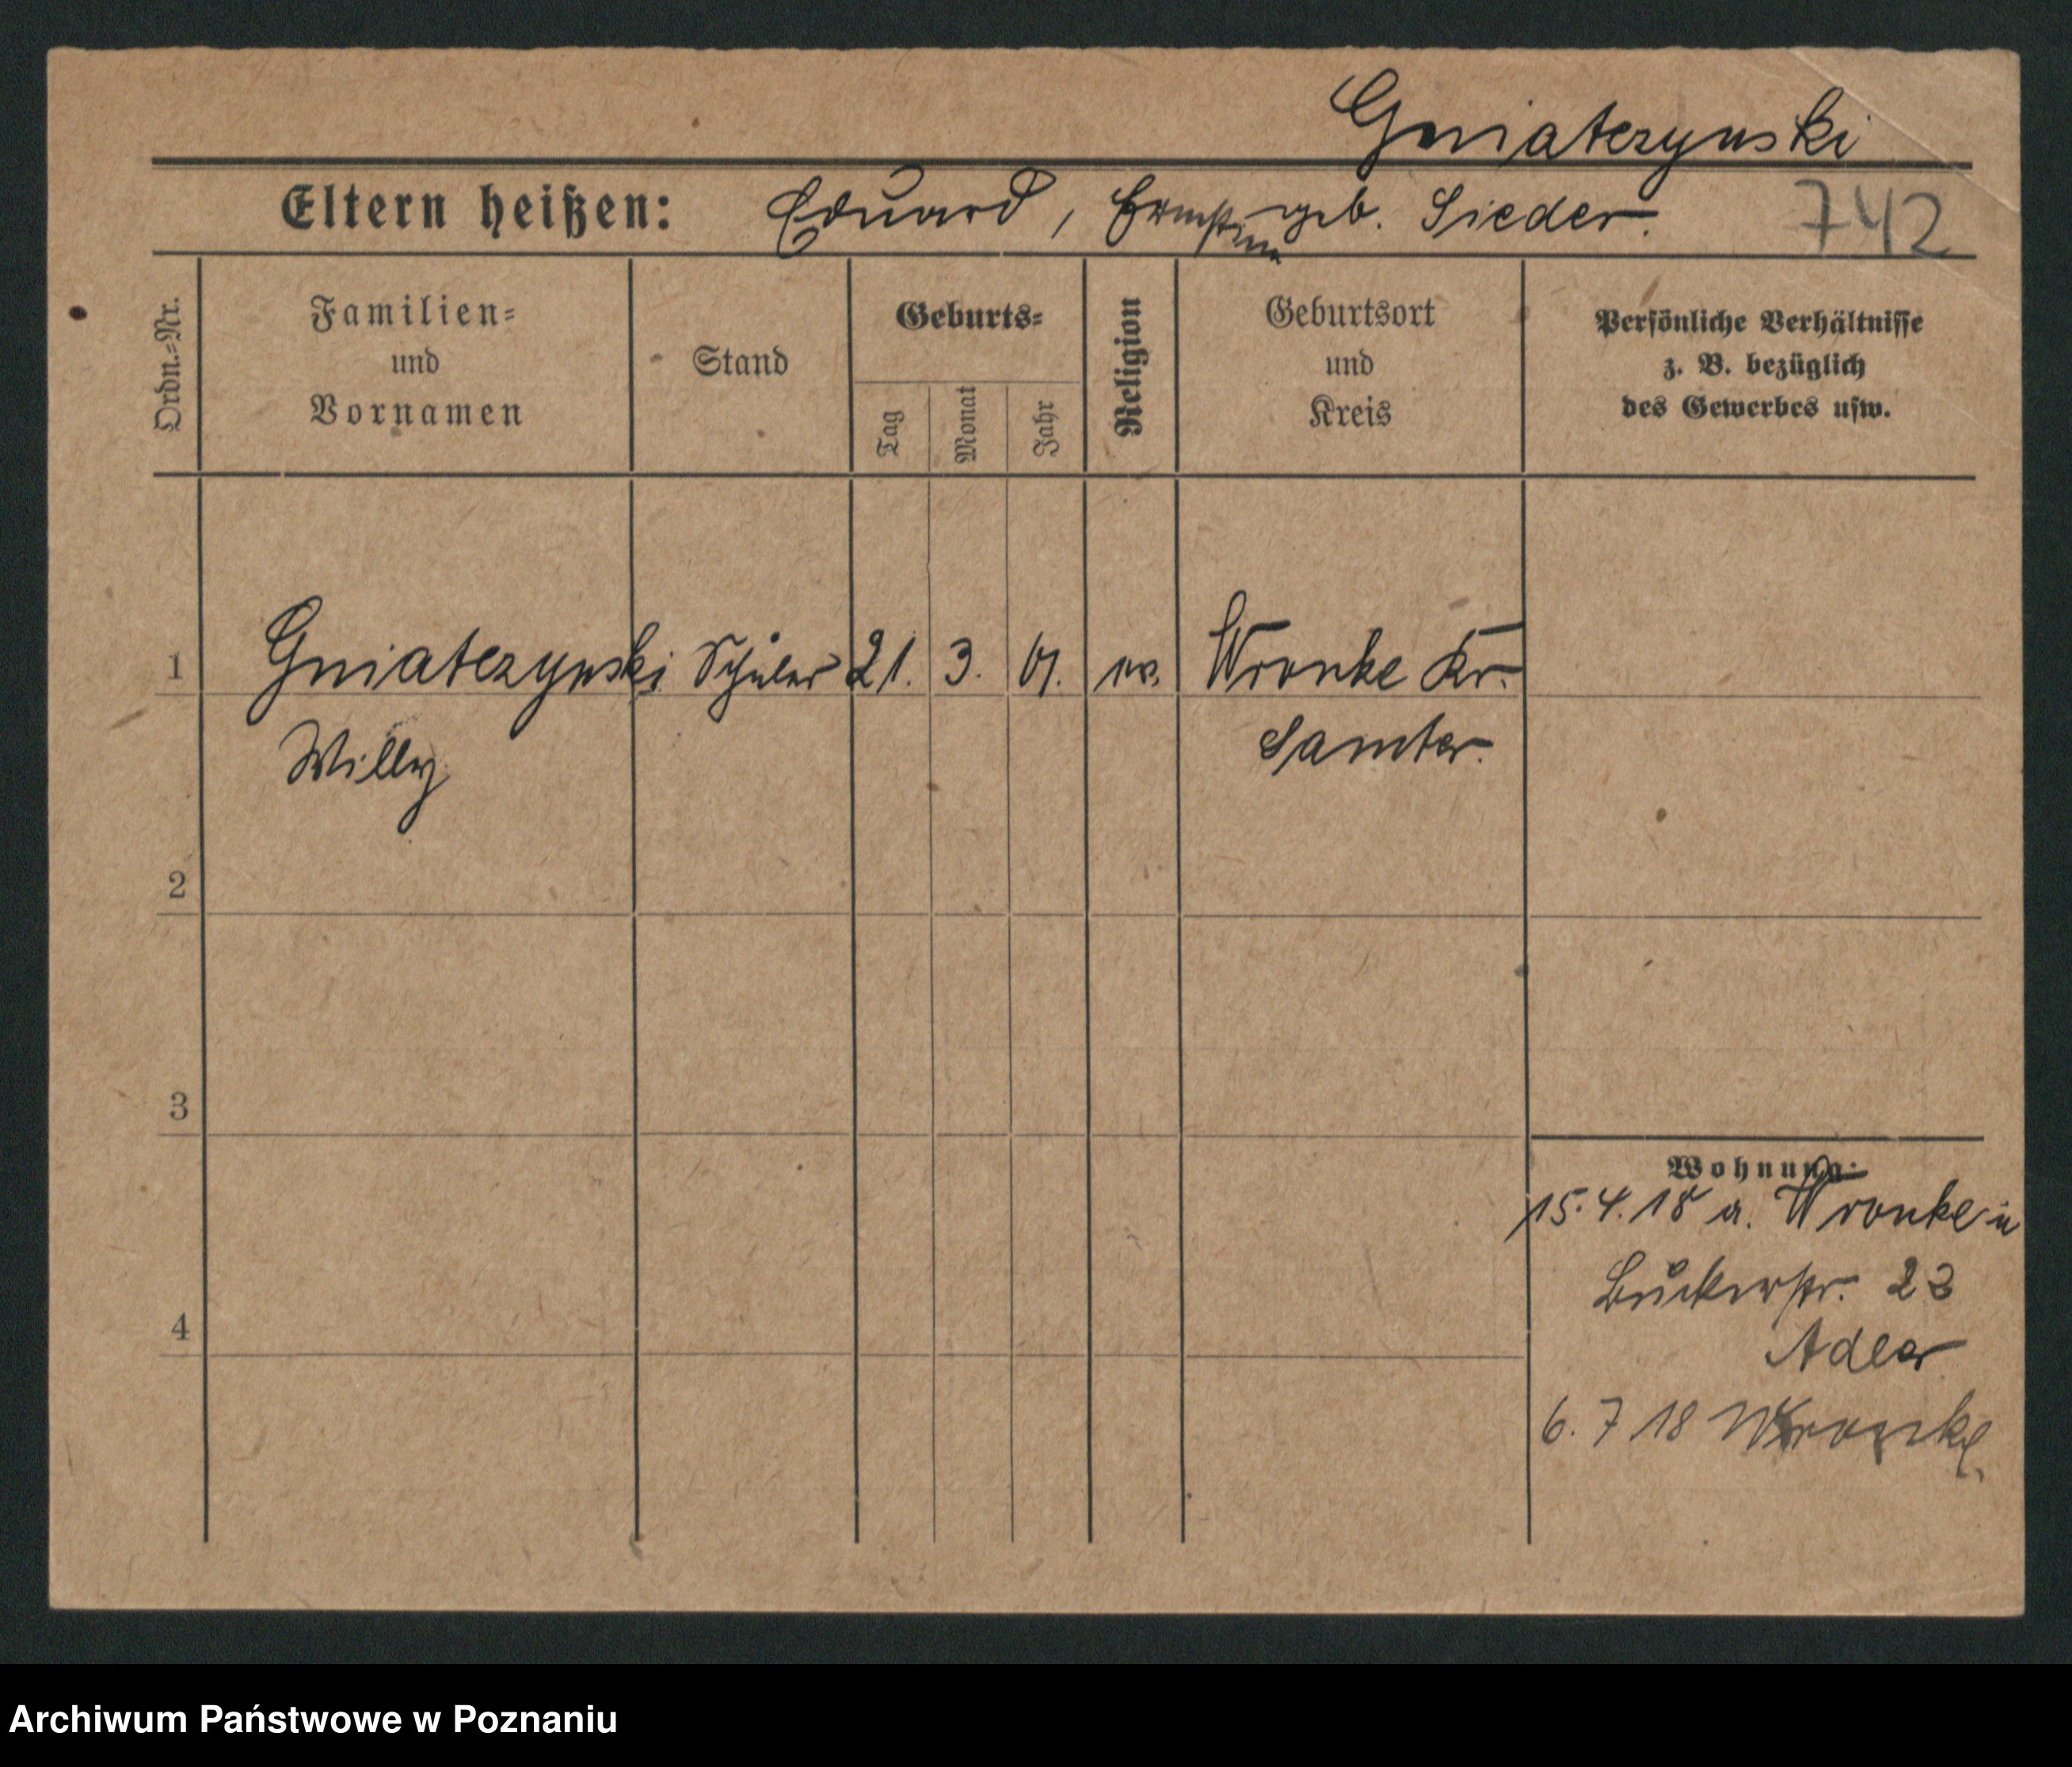 Gniatczynski
Eltern heißen: Eduard, Ernstine geb. Sieder.
742
Ordn.=Nr.
Familien=
und
Vornamen
Stand
Geburts=
Tag
Monat
Jahr
Religion
Geburtsort
und
Kreis
Persönliche Verhältnisse
z. B. bezüglich
des Gewerbes usw.
1 Gniatczynski Schüler 21. 3. 01. ev. Wronke Kr.
Willy Samter.
2
3
4
Wohnung:
15.4.18 a. Wronke in
Bukerstr. 23
Adler
6. 7 18 Wronke
Archiwum Państwowe w Poznaniu